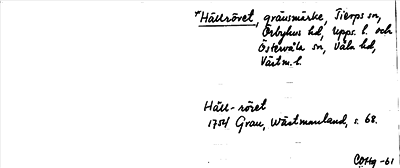 *Hällröset, gränsmärke, Tierps sn,
Örbyhus hd, Upps. l. och
Östervåla sn, Våla hd,
Västm. l.
Häll-röset
1754 Grau, Wästmanland, s. 68.
COHg -61